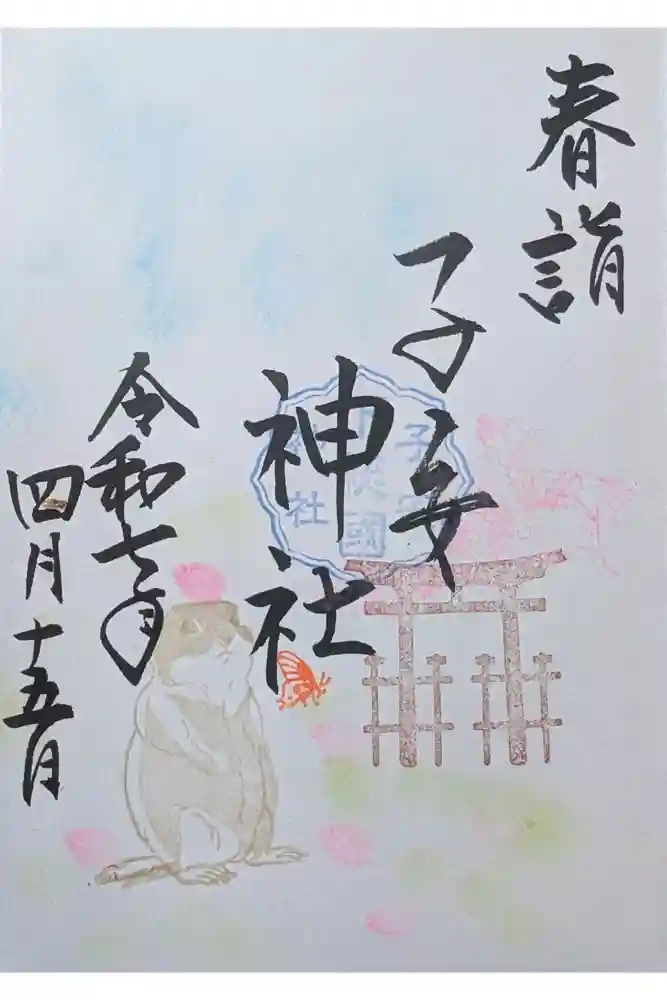 春詣
子安
神社
令和七年
四月十五日
子安
國
神社